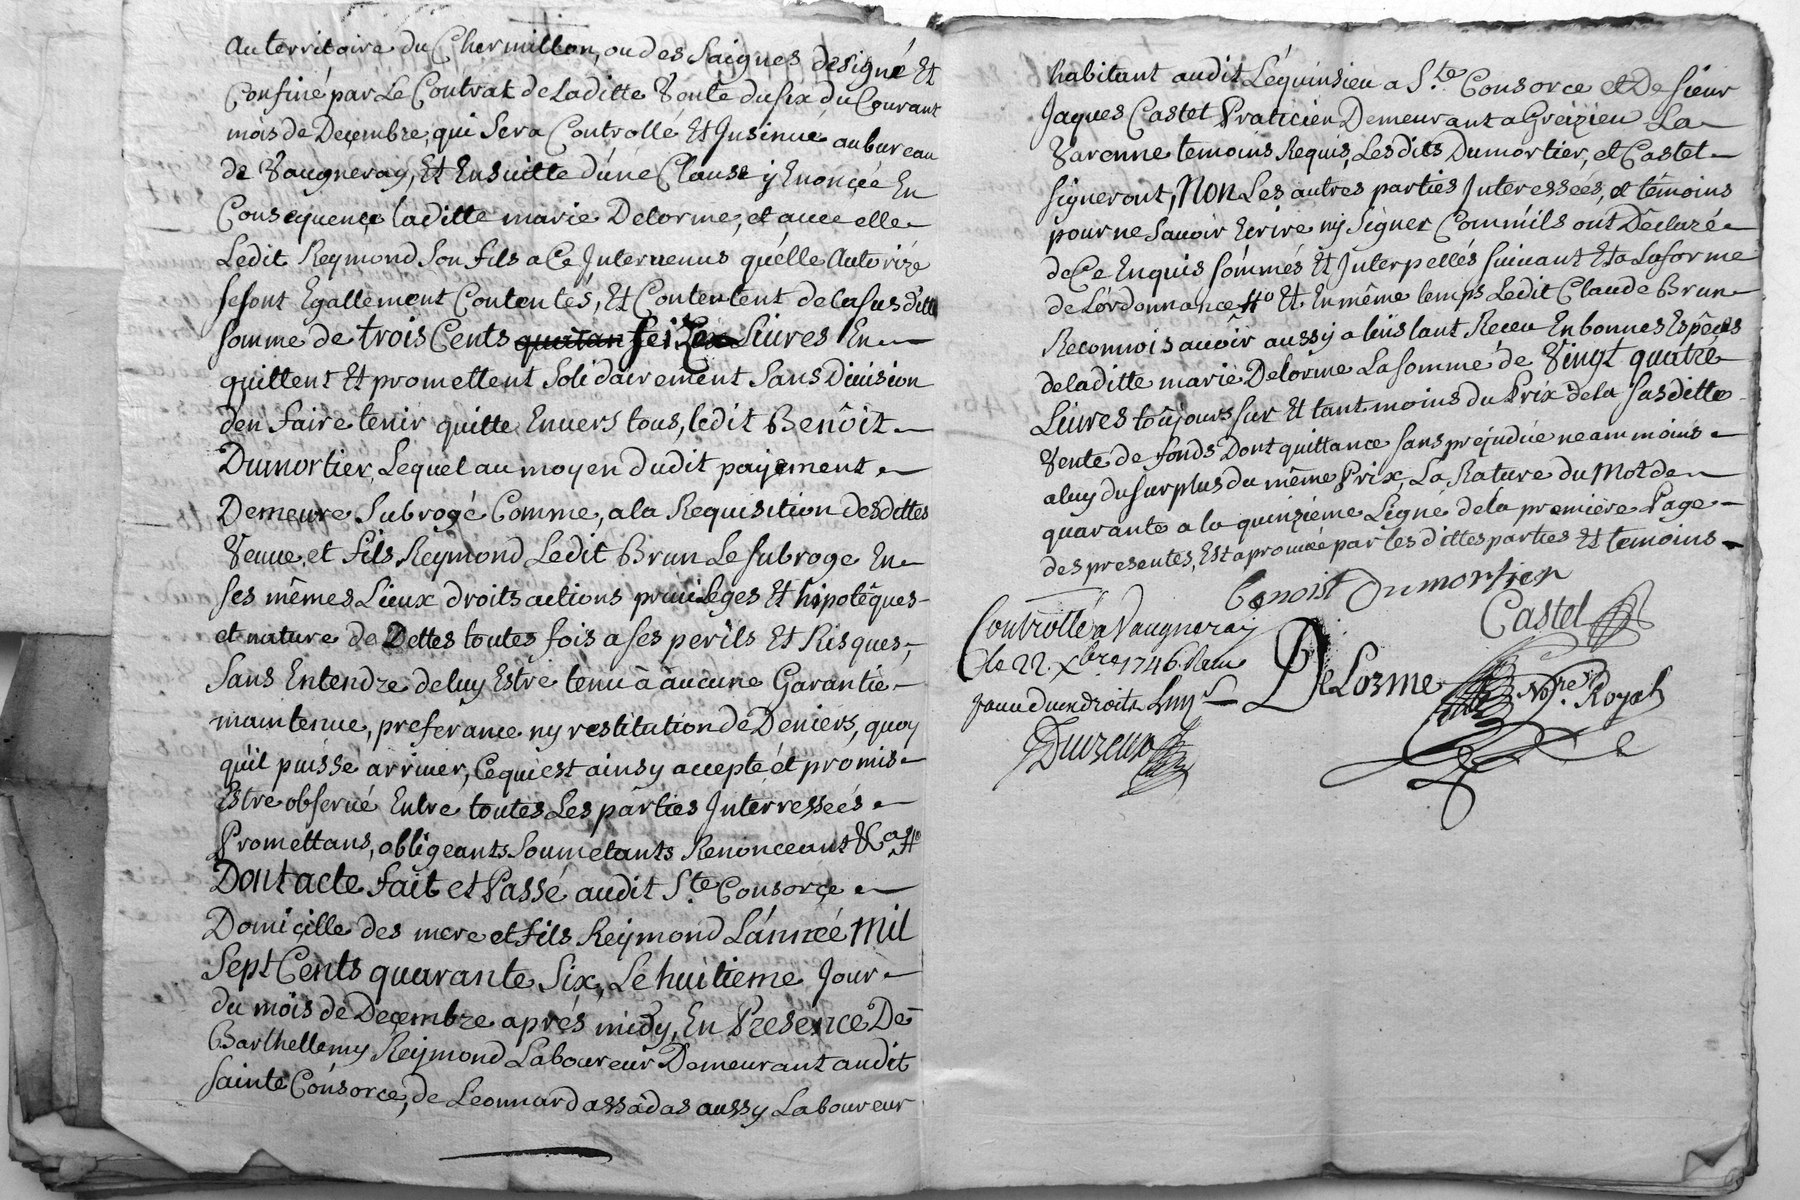 Au territoire du Chermillon, ou des Saignes designé Et
Confiné par Le Contrat de Laditte Vente du six du Courant
mois de Deçembre, qui Sera Controllé Et Insinué au bureau
de Vaugneray, Et Ensuitte d'une Clause y Enonçée En
Consequençe laditte marie Delorme, et avec elle
Ledit Reymond Son fils a Ce Intervenus qu'elle Autorize
se sont Egallement Contentés, Et Contentent de la susditte
somme de trois Cents seize Livres En
quittent Et promettent Solidairement Sans Division
d'en faire tenir quitte Envers tous, ledit Benôit
Dumortier, Lequel au moyen dudit payement
Demeure Subrogé Comme, a la Requisition desdittes
Veuve et fils Reymond Ledit Brun Le subroge En
ses mêmes Lieux droits actions privileges Et hipotêques
et nature de Dettes toutes fois a ses perils Et Risques,
Sans Entendre de luy Estre tenu à aucune Garantie
maintenue, preferance ny restitution de Deniers, quoy
qu'il puisse arriver, Ce qui est ainsy accepté et promis
Estre observé Entre toutes Les parties Interressées
Promettans, obligeants Soumetants Renonceant &Ca
Dont acte fait et Passé audit Ste Consorçe
Domiçille des mere et fils Reymond L'année Mil
Sept Cents quarante Six, Le huitieme Jour
du mois de Deçembre aprés midy, En Presençe De
Barthellemy Reymond Laboureur Demeurant audit
Sainte Consorçe, de Leonnard assadas aussy Laboureur
habitant audit Lequinsieu a Ste Consorce et De sieur
Jaques Castet Praticien Demeurant a Greizieu La
Varenne temoins Requis, Les dits Dumortier, et Castet
signeront, Non Les autres parties Interessées, et témoins
pour ne Savoir Ecrire ny Signer Comm'ils ont Déclaré
de Ce Enquis sommés Et Interpellés suivant Et a La forme
de L'ordonnance Et En même temps Ledit Claude Brun
Reconnois avoir aussy a l'instant Receu En bonnes Espêces
de laditte marie Delorme La somme de Vingt quatre
Livres toûjours sur Et tant moins du Prix de la susditte
Vente de fonds Dont quittance sans prejudice neammoins
a luy du surplus du même Prix, La Rature du Mot de
quarante a la quinziéme Ligne de la premiere Page
des presentes, Est aprouvée par les dittes parties Et temoins
benoist Dumortier
Castet
Controllé a Vaugneray
le 22 Xbre 1746
DeLorme Nore Royal